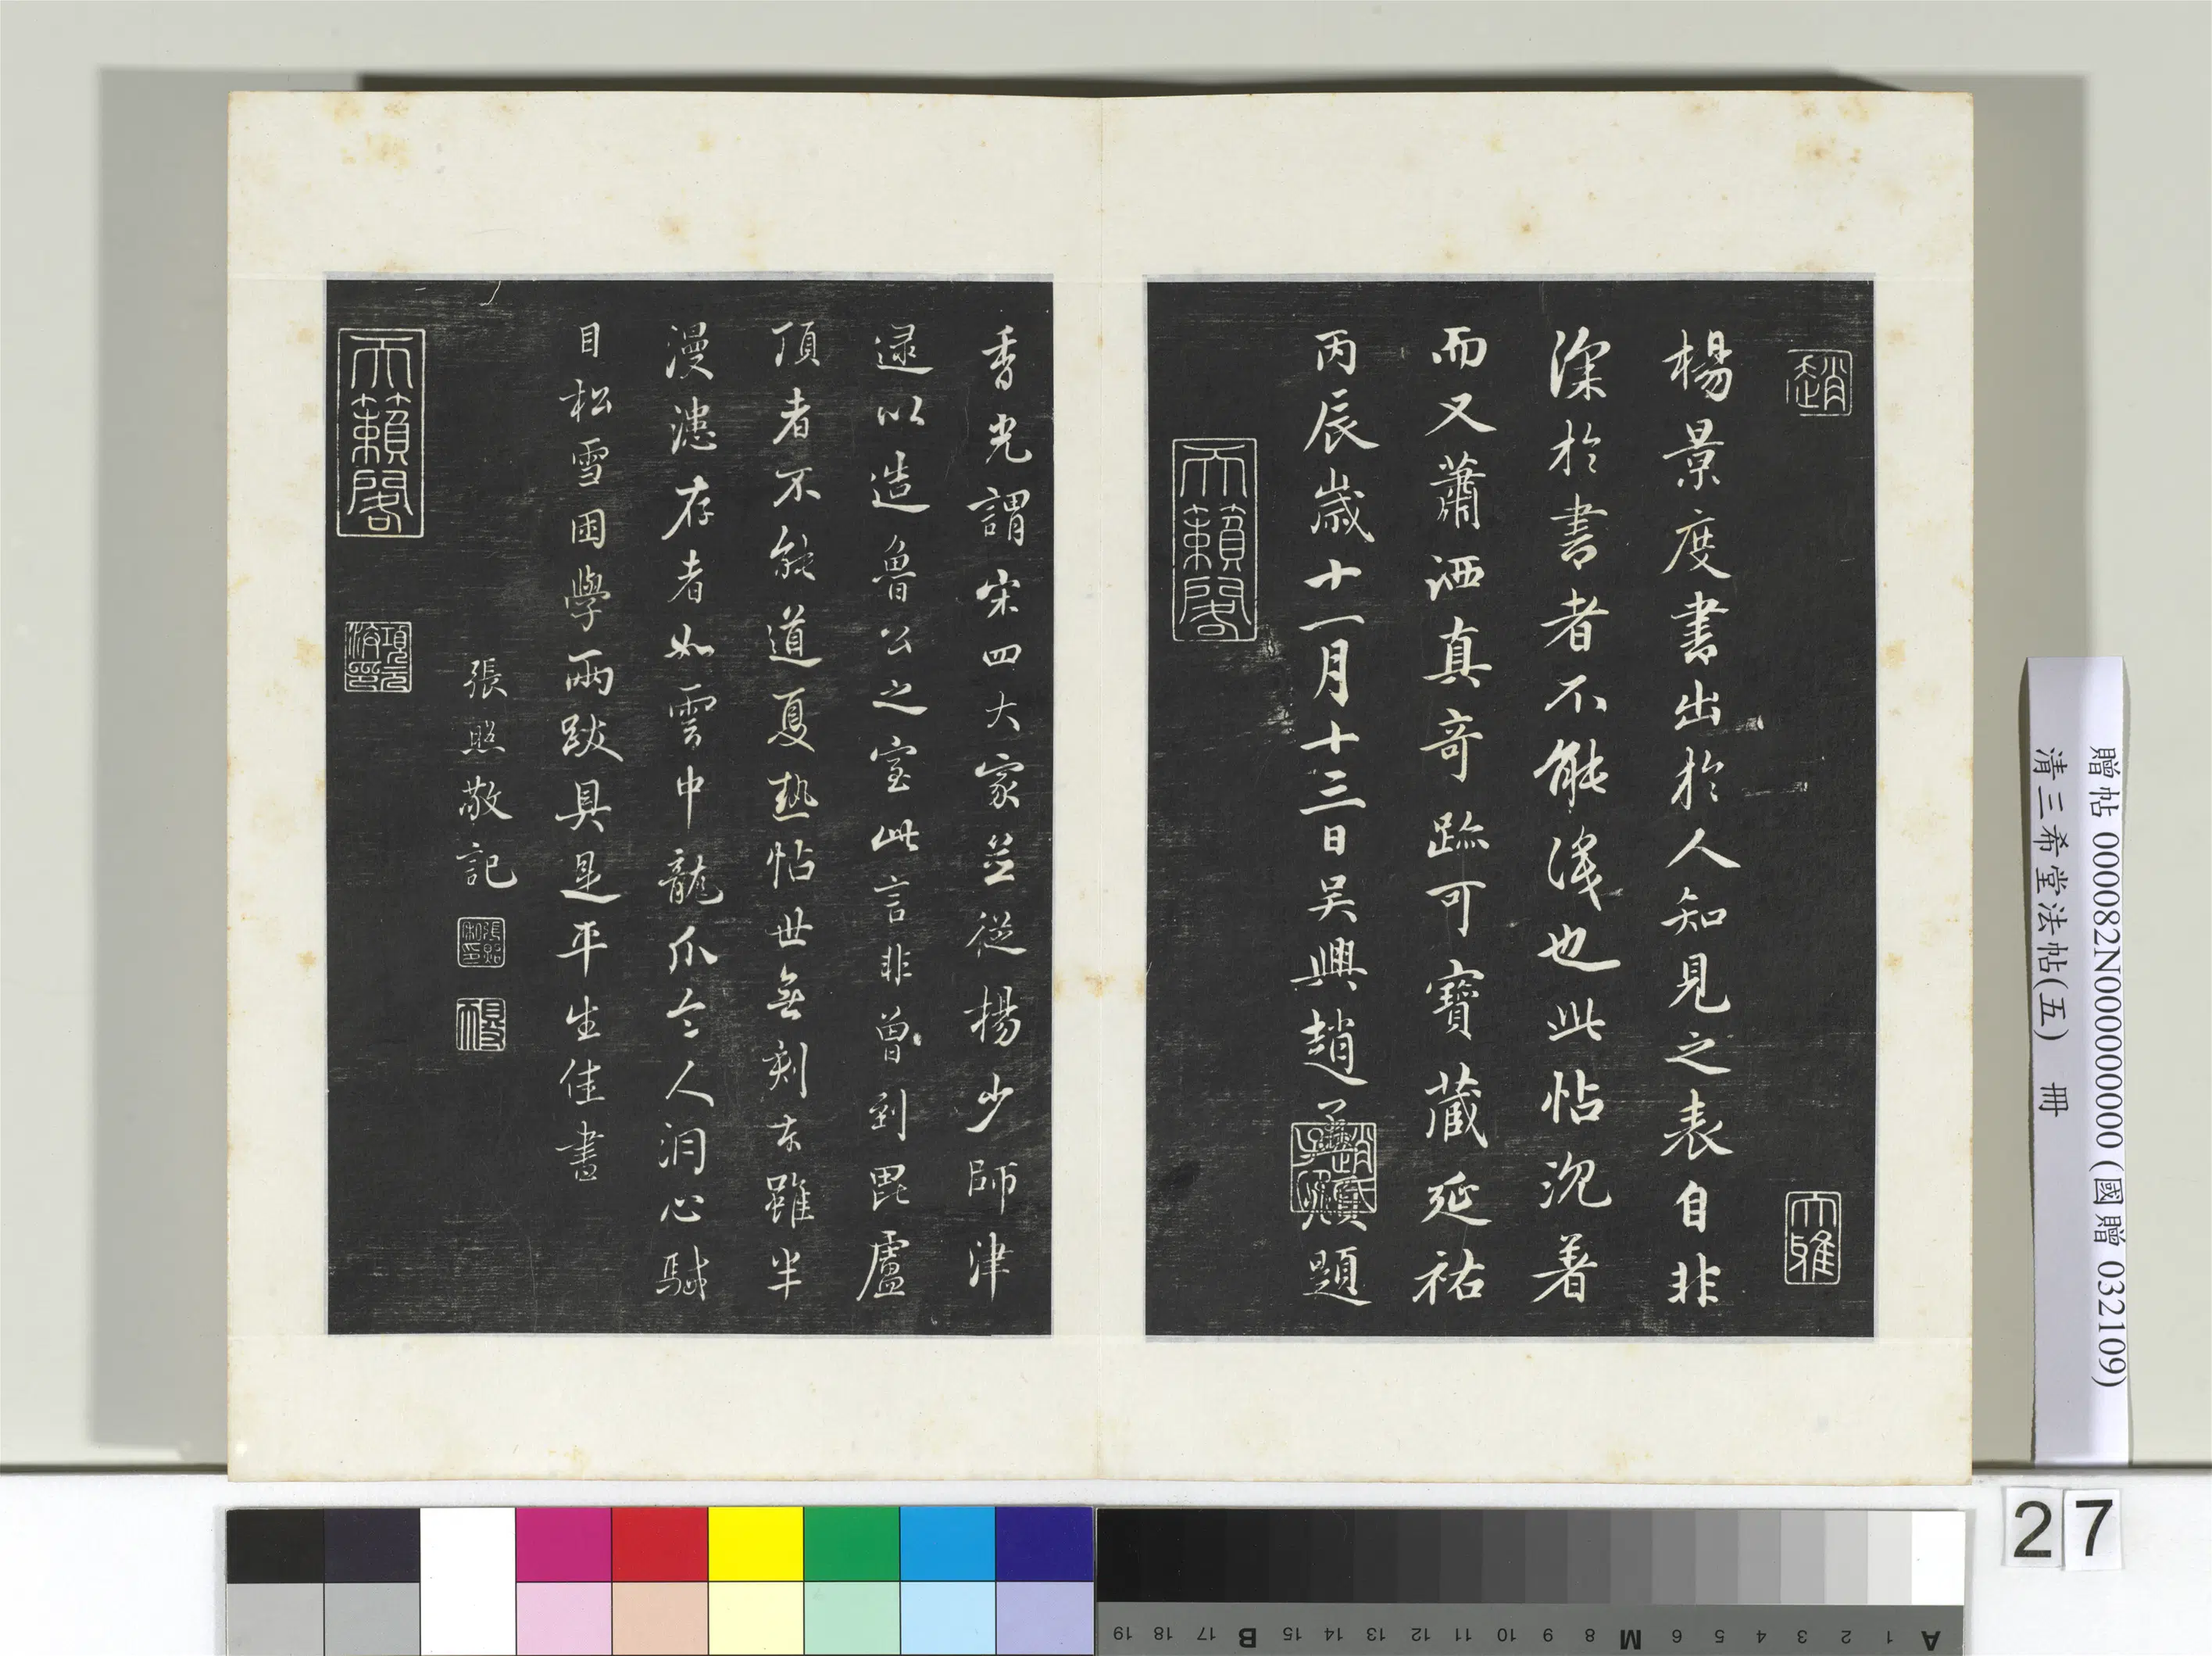 趙
大雅
楊景度書出於人知見之表自非
深於書者不能識也此帖沉著
而又蕭洒真奇跡可寶藏延祐
丙辰歲十一月十三日吳興趙孟頫題
趙氏子昂
天籟閣
香光謂宋四大家並從楊少師津
逮以造魯公之室此言非曾到毘盧
頂者不能道夏熱帖世無刻本雖半
漫漶存者如雲中龍爪令人洞心駴
目松雪困學兩跋具是平生佳書
張照敬記
張照私印
得天
天籟閣
項元汴印
贈帖 000082N000000000 (國贈 032109)
清三希堂法帖(五) 冊
27
A 1 2 3 4 5 6 M 8 9 10 11 12 13 14 15 B 17 18 19